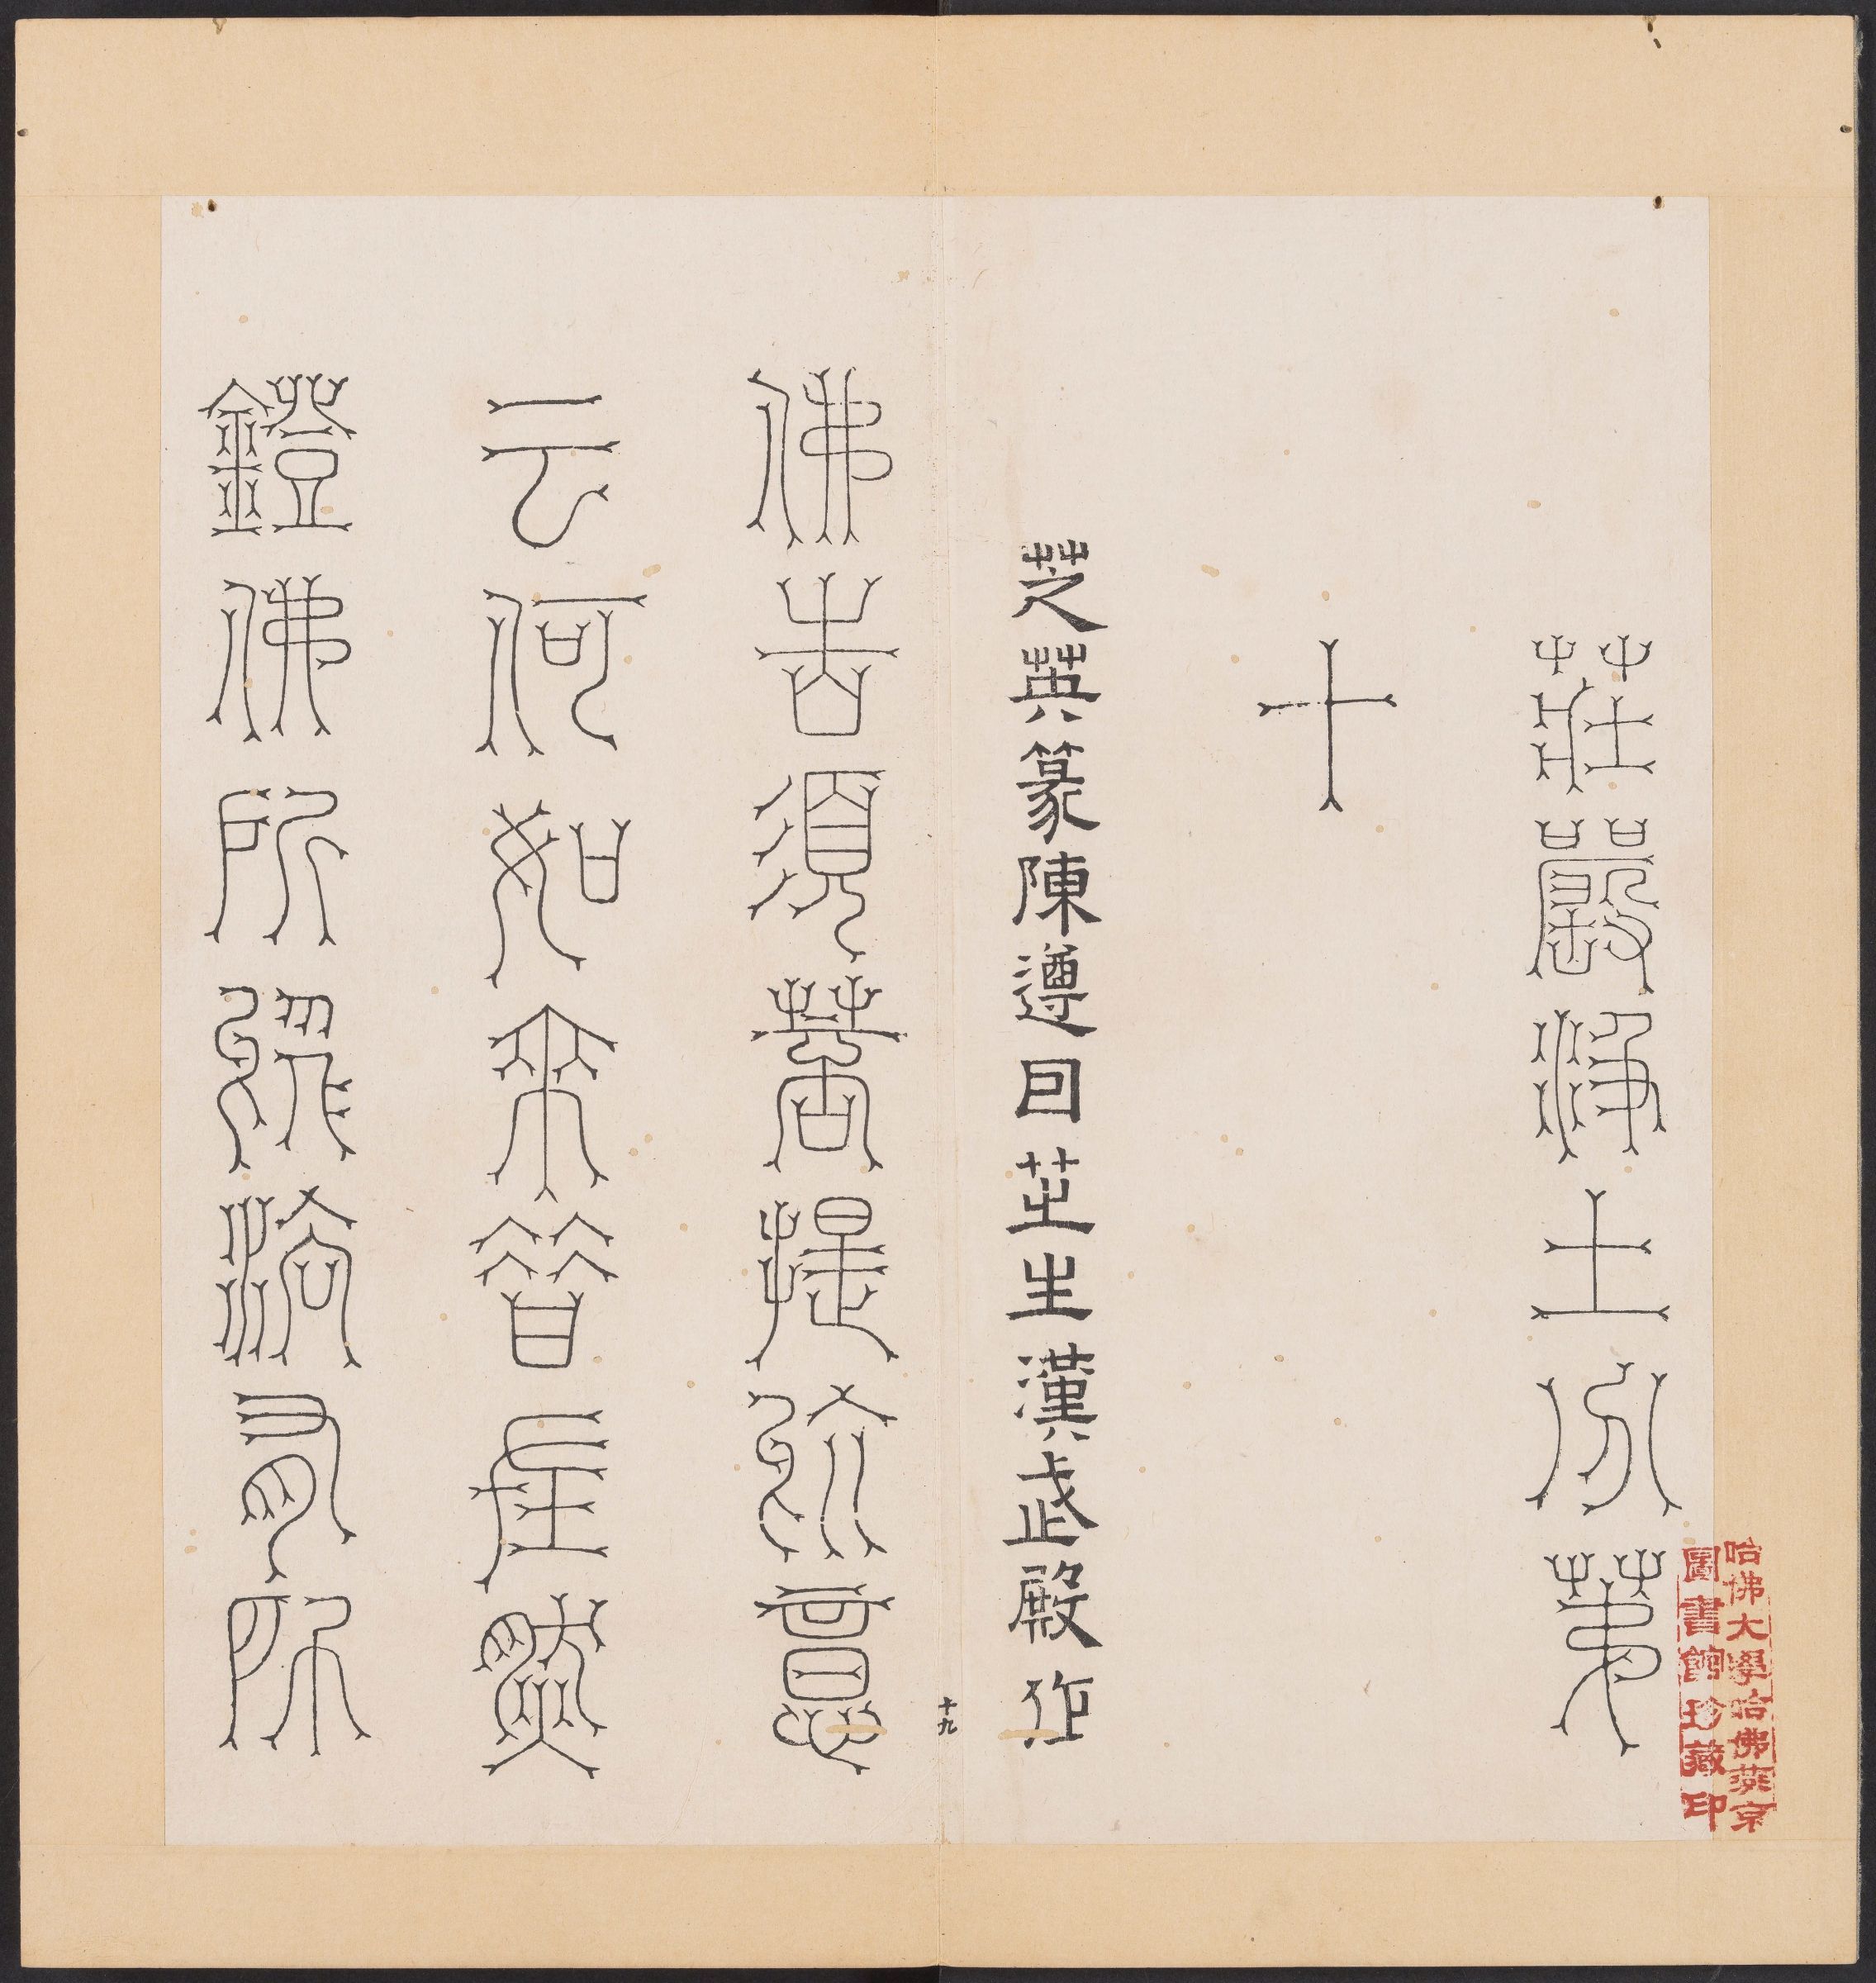 莊嚴淨土分第
十
芝英篆陳遵囙芝生漢武殿作
佛告須菩提於意
云何如來昔在然
鐙佛所於法有所
十九
哈佛大學哈佛燕京
圖書館珍藏印